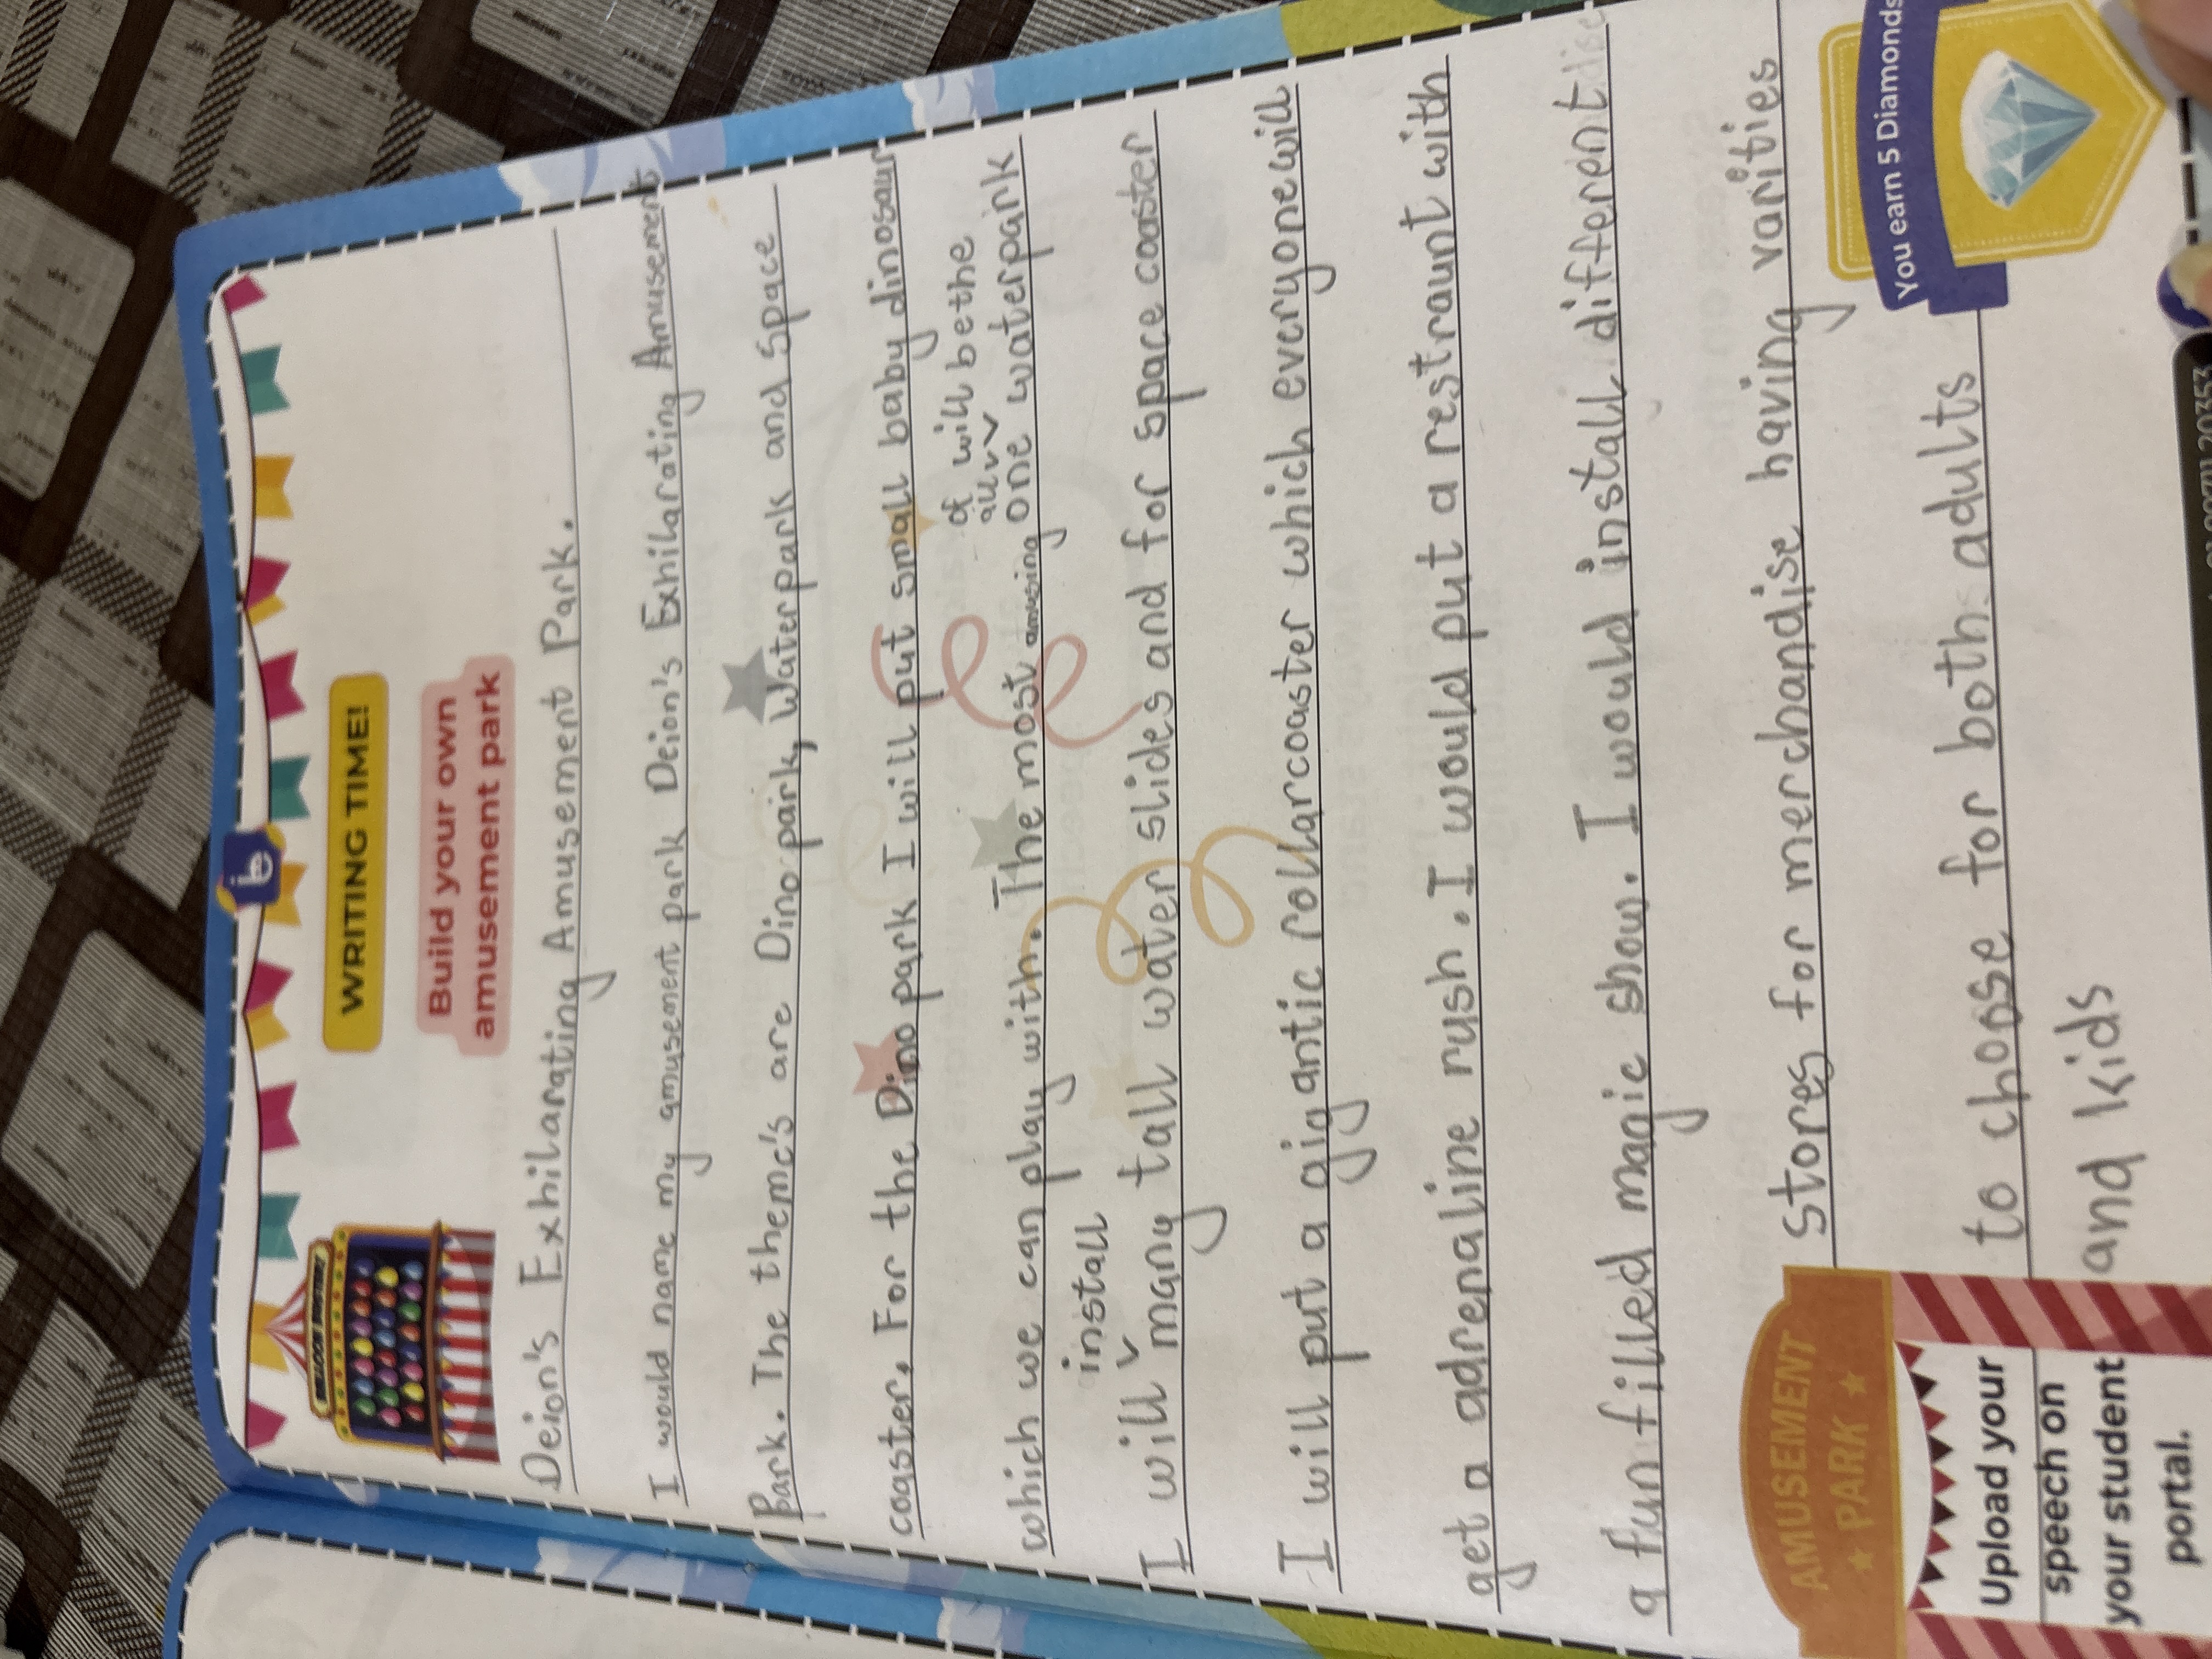 WRITING TIME!
Build your own
amusement park
Deion's Exhilarating Amusement Park.
I would name my amusement park Deion's Exhilarating Amusement
Park. The theme's are Dino park, Waterpark and Space
coaster. For the Dino park I will put small baby dinosaur
of will be the
all
which we can play with. The most amusing one waterpark
install
I will many tall water slides and for space coaster
I will put a gigantic rollarcoaster which everyone will
get a adrenaline rush. I would put a restraunt with
a fun filled magic show. I would install different
stores for merchandise having varities
e
to choose for both adults
and kids
AMUSEMENT
PARK
Upload your
speech on
your student
portal.
You earn 5 Diamonds